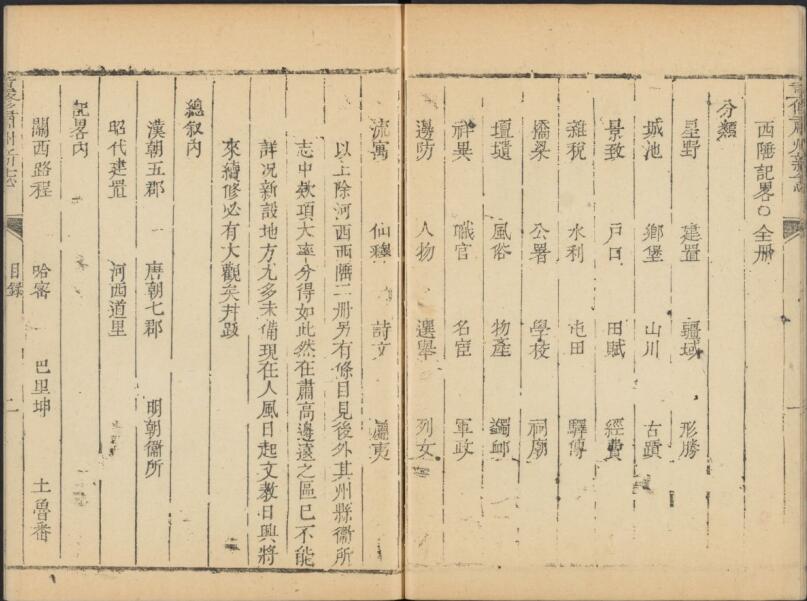 西陲記畧○全册
分類
星野 建置 疆域 形勝
城池 鄉堡 山川 古蹟
景致 戶口 田賦 經費
雜稅 水利 屯田 驛傳
橋梁 公署 學校 祠廟
壇壝 風俗 物產 蠲卹
祥異 職官 名宦 軍政
邊防 人物 選舉 列女
流寓 仙釋 詩文 屬夷
以上除河西西陲二册另有條目見後外其州縣衞所
志中欸項大率分得如此然在肅高邊遠之區已不能
詳况新設地方尤多未備現在人風日起文敎日興將
來續修必有大觀矣幷題
總叙內
漢朝五郡 唐朝七郡 明朝衞所
昭代建置 河西道里
記畧內
關西路程 哈密 巴里坤 土魯番
目錄 二